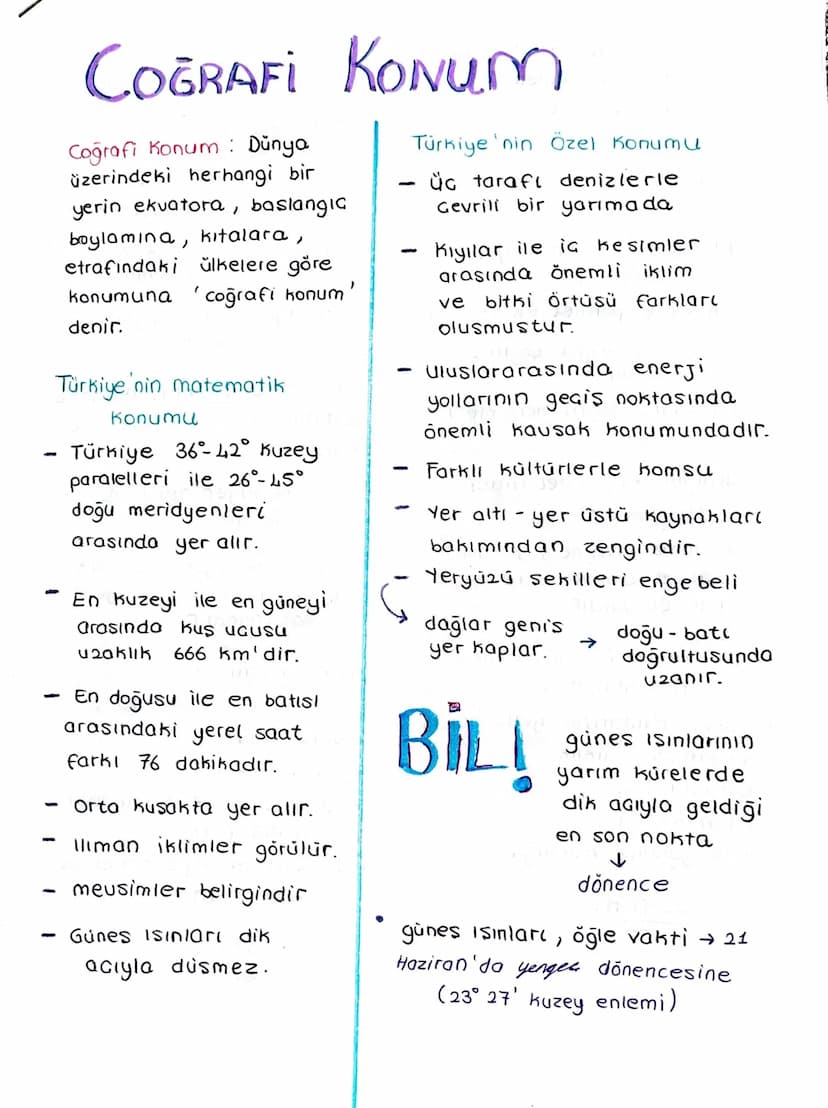 COĞRAFİ KONUM
Coğrafi Konum : Dünya
üzerindeki herhangi bir
yerin ekvatora, baslangıc
boylamına, kıtalara,
etrafındaki ülkelere göre
konumuna 'coğrafi konum'
denir.
Türkiye'nin matematik
konumu
- Türkiye 36°-42° kuzey
paralelleri ile 26°-45°
doğu meridyenleri
arasında yer alır.
- En kuzeyi ile en güneyi
arasında kus ucusu
uzaklık 666 km'dir.
- En doğusu ile en batısı
arasındaki yerel saat
farkı 76 dakikadır.
- Orta kusakta yer alır.
- Ilıman iklimler görülür.
- mevsimler belirgindir
- Günes ısınları dik
acıyla düsmez.
Türkiye'nin Özel Konumu
- Üc tarafı denizlerle
cevrili bir yarımada
- Kıyılar ile ic kesimler
arasında önemli iklim
ve bitki örtüsü farkları
olusmustur.
- Uluslararasında enerji
yollarının gecis noktasında
önemli kavsak konumundadır.
- Farklı kültürlerle komsu
- Yer altı - yer üstü kaynakları
bakımından zengindir.
- Yeryüzü sekilleri engebeli
dağlar genis
yer kaplar.
→ doğu - batı
doğrultusunda
uzanır.
BİL!
günes ısınlarının
yarım kürelerde
dik acıyla geldiği
en son nokta
↓
dönence
• günes ısınları, öğle vakti → 21
Haziran'da yengec dönencesine
(23° 27' kuzey enlemi)